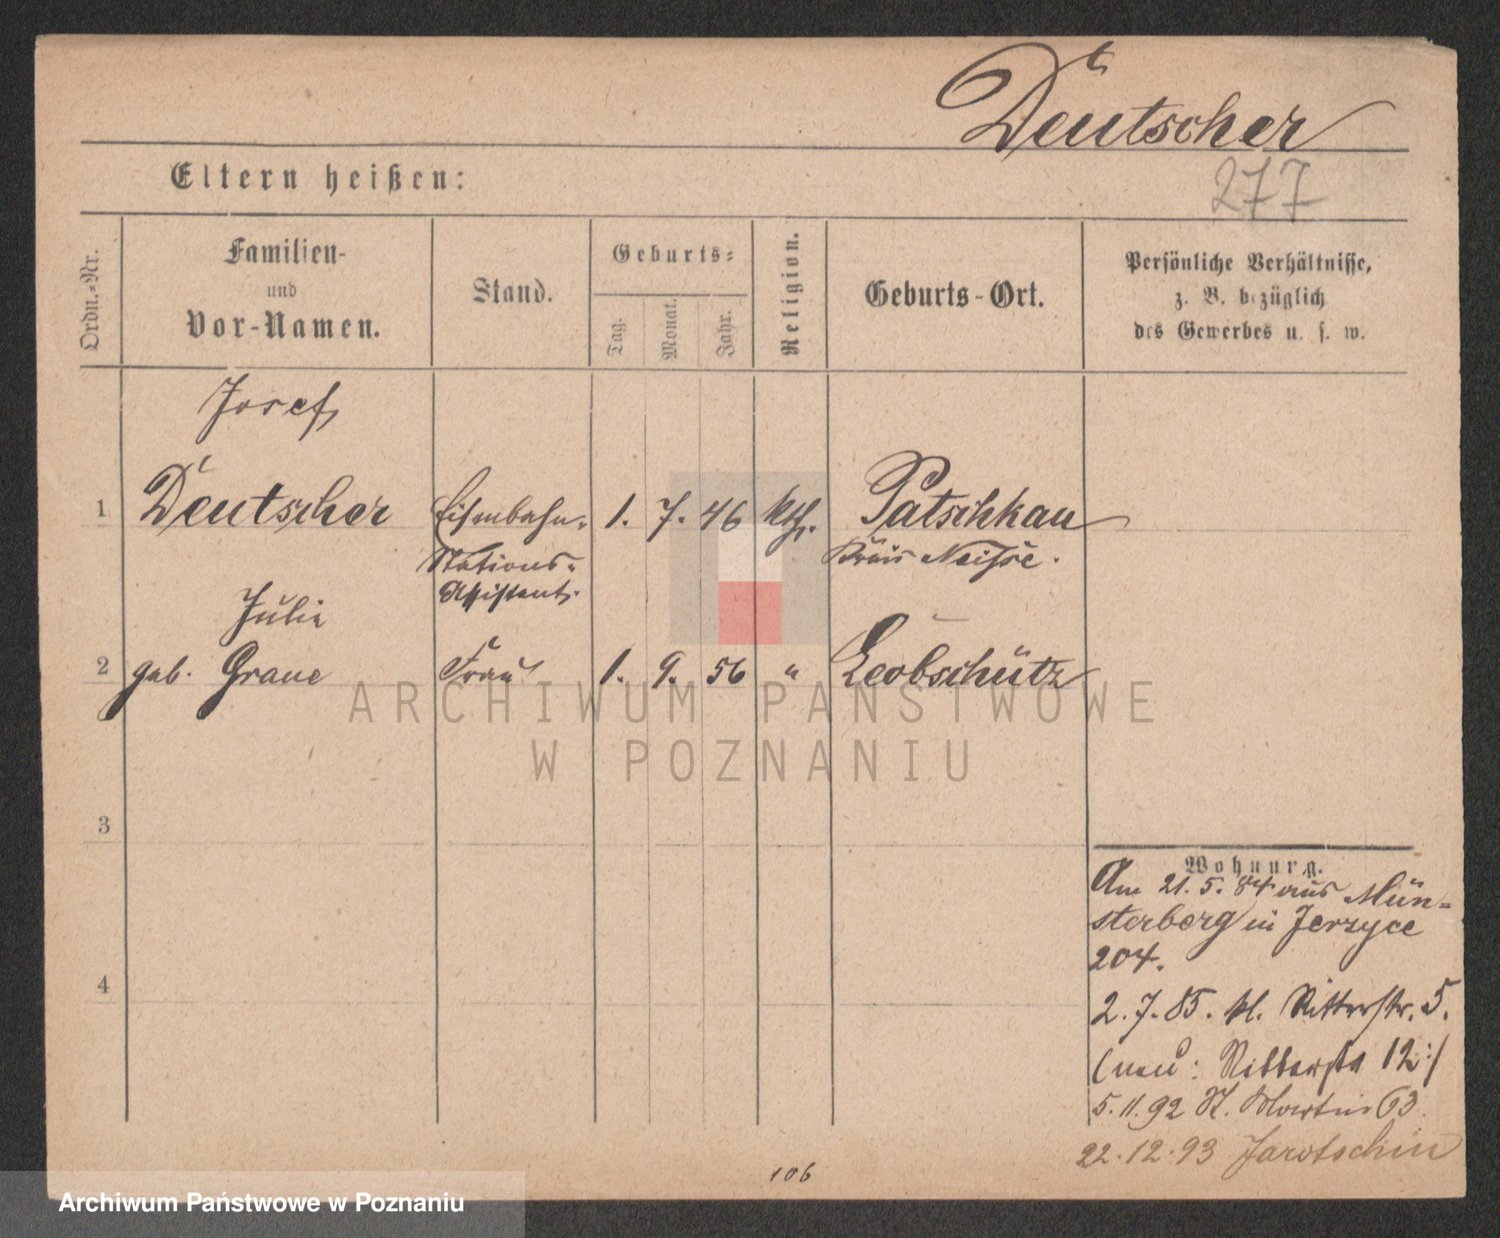 Deutscher
277
Eltern heißen:
Ordn.-Nr.
Familien-
und
Vor-Namen.
Stand.
Geburts-
Tag.
Monat.
Jahr.
Religion.
Geburts-Ort.
Persönliche Verhältnisse,
z. B. bezüglich
des Gewerbes u. s. w.
Josef
1 Deutscher Eisenbahn- 1. 7. 46 kth. Patschkau
Stations- Kreis Neisse.
Assistent.
Julie
2 geb. Graue Frau 1. 9. 56 " Leobschütz
ARCHIWUM PAŃSTWOWE
W POZNANIU
3
Wohnung.
Am 21.5.84 aus Mün-
sterberg in Jerzyce
204.
4
2.7.85. kl. Ritterstr. 5.
(neu: Ritterstr 12:/
5.11.92 St. Martin 63
22.12.93 Jarotschin
106
Archiwum Państwowe w Poznaniu